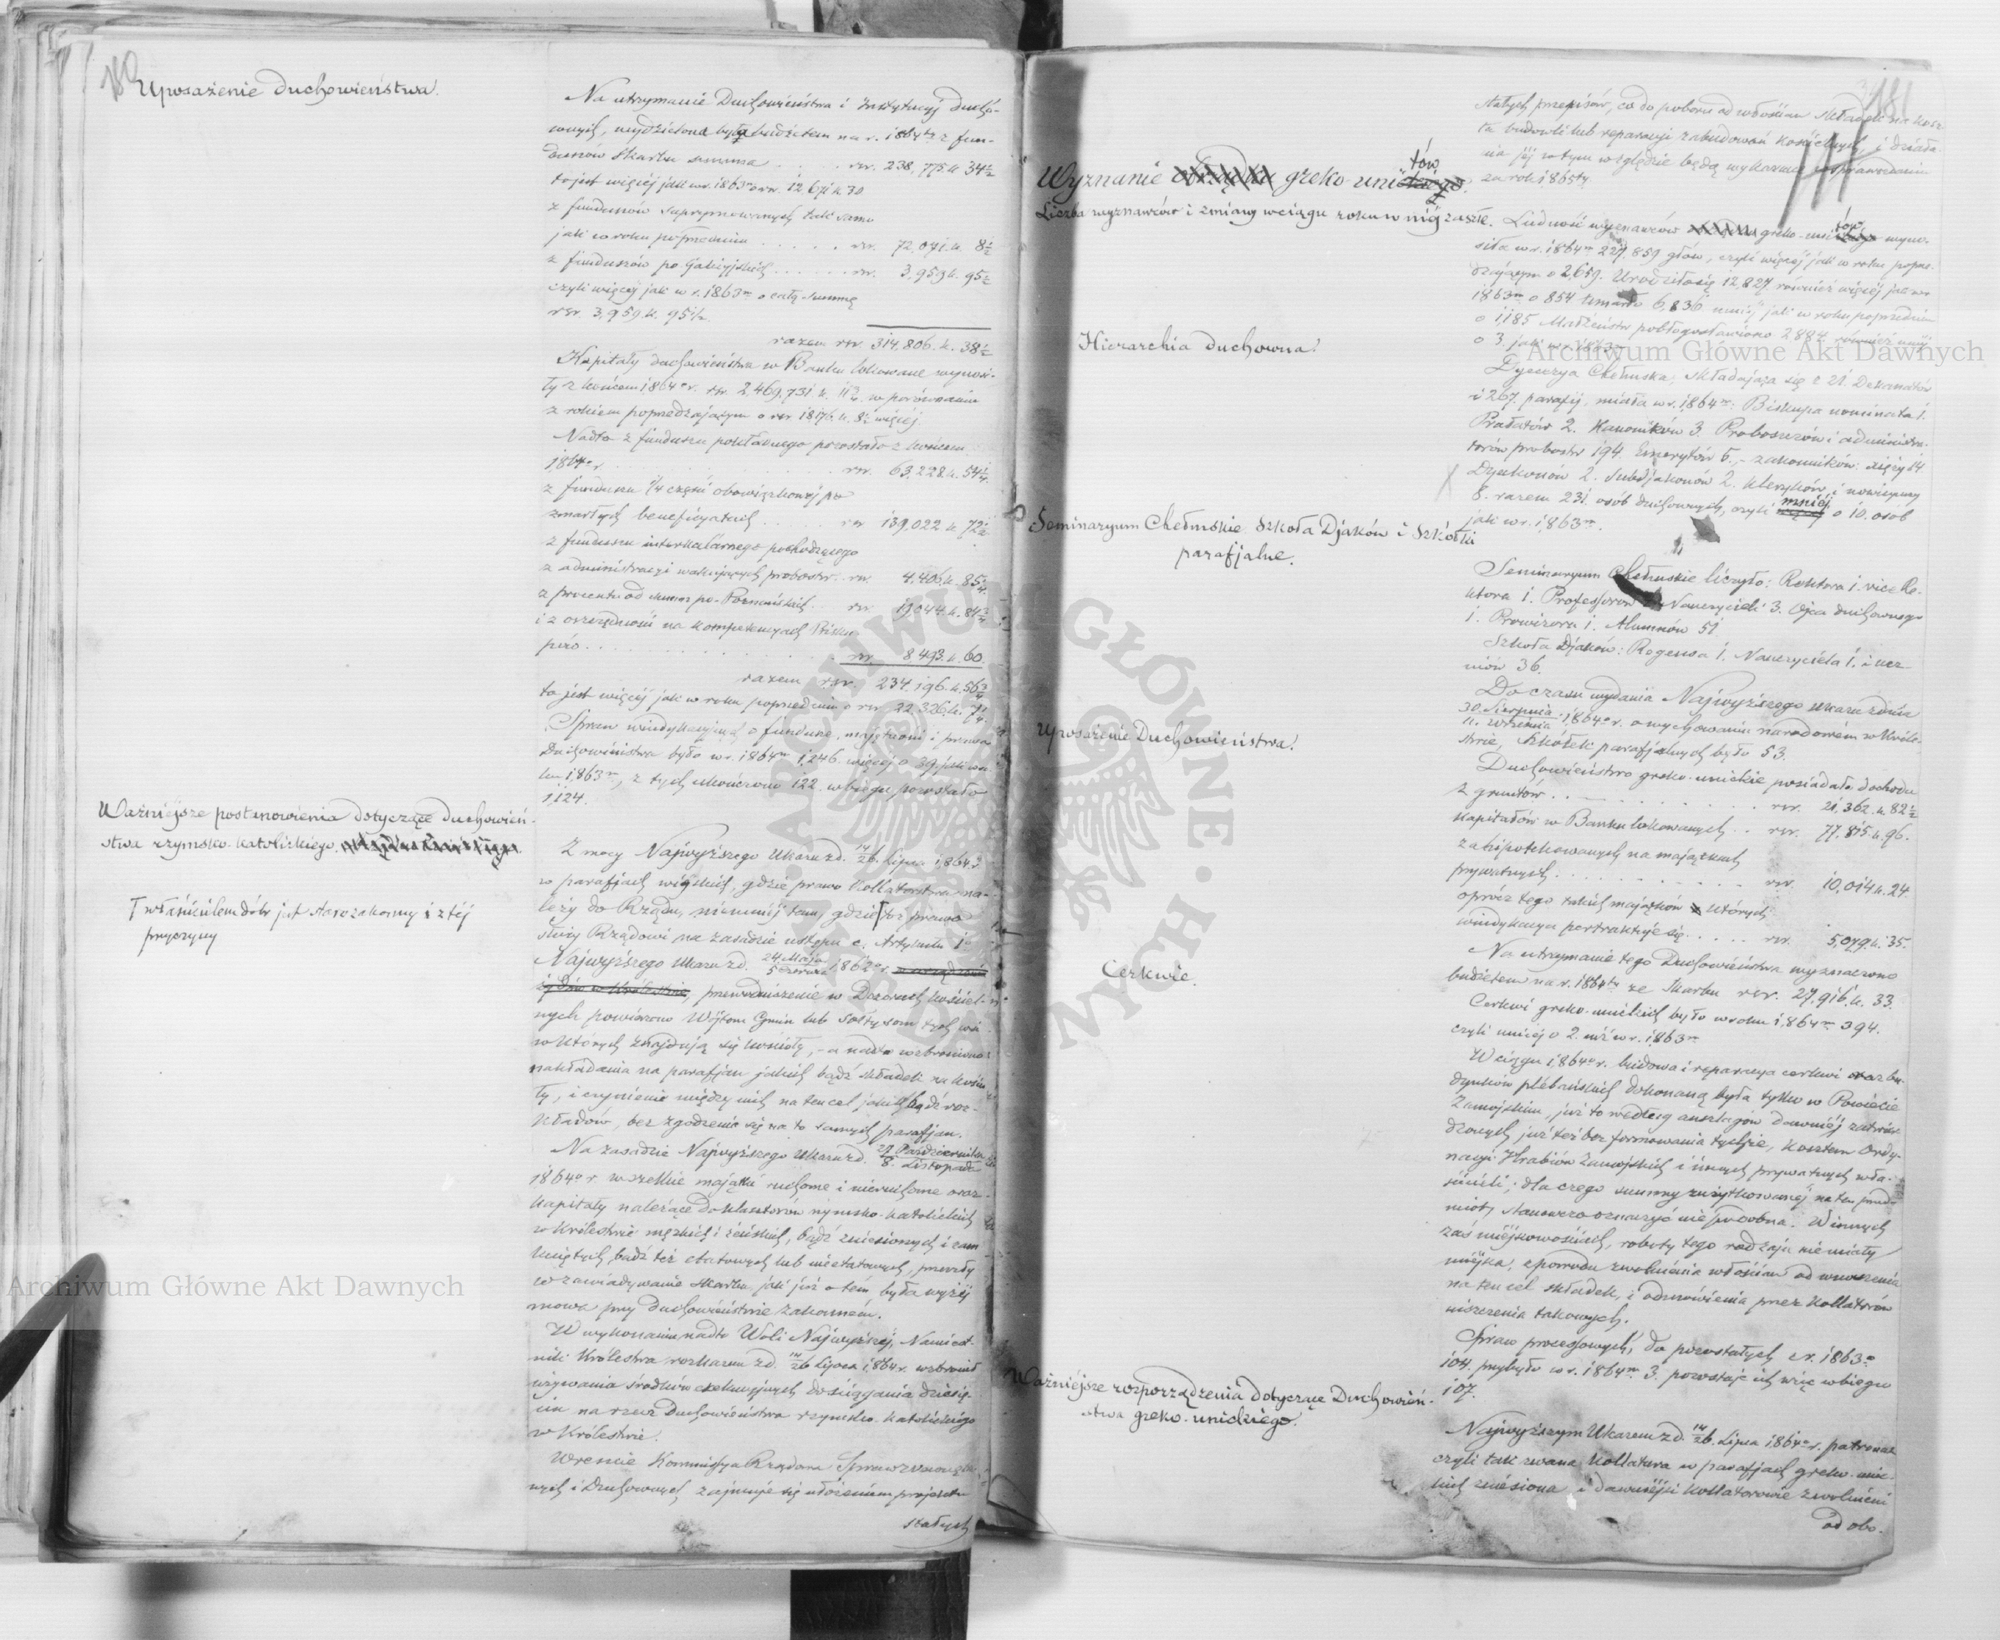 Uposażenie Duchowieństwa.
Na utrzymanie Duchowieństwa i Instytucyj ducho-
wnych, wydzieloną była budżetem na r. 1864ty z fun-
duszów Skarbu summa . . . . rsr. 238,775 k. 34½
to jest więcéj jak w r. 1863 o rsr. 12,671 k. 30
z funduszów supprymowanych także samo
jak w roku poprzednim . . . . . rsr. 72,071 k. 8½
z funduszów po-Galicyjskich . . . . . . rsr. 3,959 k. 95½
czyli więcéj jak w r. 1863m o całą summę
rsr. 3,959 k. 95½.
razem rsr. 314,806. k. 38½
Kapitały duchowieństwa w Banku lokowane wynosi-
ły z końcem 1864o r. rsr. 2,469,731 k. w porównaniu
z rokiem poprzedzającym o rsr. k. więcéj.
Nadto z funduszu pozostało z końcem
1864o r. . . . rsr. 63,228 k. 54¼
z funduszu ¼ części obowiązkowéj po
zmarłych beneficyatach . . . . . rsr. 139,022 k. 72½
z funduszu interkalarnego pochodzącego
z administracyi wakujących probostw . . rsr. 4,406 k. 85¾
z procentu od summ po-Poznańskich . rsr. 19,044 k. 84¾
i z oszczędności na kompetencyach Bisku-
pów . . . . . . rsr. 8,493. k. 60.
razem rsr. 234,196 k. 56¾
to jest więcéj jak w roku poprzednim o rsr. 22,326 k. 7¼
Spraw windykacyjnych o fundusze, majątki i prawa
Duchowieństwa było w r. 1864m 1,246 więcéj o 39, jak w ro-
ku 1863m, z tych ukończono 122 w biegu pozostało
1,124.
Ważniéjsze postanowienia dotyczące duchowień-
stwa rzymsko-katolickiego
Z mocy Najwyższego Ukazu z d. 14/26 Lipca 1864 r.
w parafjach wiejskich, gdzie prawo Kollatorstwa na-
leży do Rządu, niemniéj tam, gdzie toż prawo
służy Rządowi na zasadzie ustępu c. Artykułu 1o
Ꞁ właścicielem dóbr jest starozakonny i z téj
przyczyny
Najwyższego Ukazu z d. 24 Maja/5 Czerwca 1862o r.
żydów w Królestwie, przewodniczenie w Dozorach kościel-
nych powierzono Wójtom Gmin lub Sołtysom tych wsi
w których znajdują się kościoły, - a nadto wzbroniono
nakładania na parafjan jakich bądź składek na kościo-
ły, i czynienia między nich na ten cel jakich bądź roz-
kładów, bez zgodzenia się na to samych parafjan.
Na zasadzie Najwyższego Ukazu z d. 27 Października/8 Listopada
1864o r. wszelkie majątki ruchome i nieruchome oraz
kapitały należące do klasztorów rzymsko-katolickich
w Królestwie męzkich i żeńskich, bądź zniesionych i zam-
kniętych, bądź też etatowych lub nieetatowych, przeszły
w zawiadywanie Skarbu, jak już o tém była wyżéj
mowa przy duchowieństwie zakonném.
W wykonaniu nadto Woli Najwyższéj, Namiest-
nik Królestwa rozkazem z d. 14/26 Lipca 1864 r. wzbronił
używania środków exekucyjnych do ściągania dziesię-
cin na rzecz Duchowieństwa rzymsko-katolickiego
w Królestwie.
Wreszcie Kommissya Rządowa Spraw Wewnętrz-
nych i Duchownych, zajmuje się ułożeniem projektu
stałych
181
stałych przepisów, co do poboru od włościan składek na kosz-
ta budowli lub reparacyi zabudowań kościelnych, i działa-
nia jéj w tym względzie będą wykazane w sprawozdaniu
za rok 1865ty.
Wyznanie obrządku greko-unickiego tów.
Liczba wyznawców i zmiany w ciągu roku w niéj zaszłe.
Ludność wyznawców greko-unitów wyno-
siła w r. 1864m 227,859 głów, czyli więcéj jak w roku poprze-
dzającym o 2,659. Urodziło się 12,827 również więcéj jak w r.
1863m o 854 umarło 6,836 mniéj jak w roku poprzednim
o 1,185 Małżeństw pobłogosławiono 2882 również mniéj
o 3. jak w r. 1863m
Hierarchia duchowna.
Dyecezya Chełmska, składająca się z 21. Dekanatów
i 267. parafij, miała w r. 1864m: Biskupa nominata 1.
Prałatów 2. Kanoników 3. Proboszczów i administra-
torów probostw 194. Emerytów 5, - zakonników: księży 14
Dyakonów 2. Subdjakonów 2. kleryków i nowicyuszy
8. razem 231 osób duchownych, czyli mniéj o 10. osób
jak w r. 1863m.
Seminaryum Chełmskie Szkoła Djaków i Szkółki
parafjalne.
Seminaryum Chełmskie liczyło: Rektora 1. vice Re-
ktora 1. Professorów Nauczycieli 3. Ojca duchownego
1. Prowizora 1. Alumnów 51.
Szkoła Djaków: Regensa 1. Nauczyciela 1. i ucz-
niów 36.
Do czasu wydania Najwyższego ukazu z dnia
30 Sierpnia/11. Września 1864o r. o wychowaniu narodowém w Króle-
stwie, Szkółek parafjalnych było 53.
Uposażenie Duchowieństwa.
Duchowieństwo greko-unickie posiadało dochodu
z gruntów . . . . . . . rsr. 21,362. k. 82½
kapitałów w Banku lokowanych . . rsr. 77,815 k. 96.
zahipotekowanych na majątkach
prywatnych . . . . . . . . . . . rsr. 10,014 k. 24
oprócz tego takich majątków o których
windykacya pertraktuje się . . . . . rsr. 5,079. k. 35.
Na utrzymanie tego Duchowieństwa wyznaczono
budżetem na r. 1864ty ze Skarbu rsr. 27,916. k. 33
Cerkwie.
Cerkwi greko-unickich było w roku 1864m 394.
czyli mniéj o 2. niż w r. 1863m
W ciągu 1864o r. budowa i reparacya cerkwi oraz bu-
dynków plebańskich dokonaną była tylko w Powiecie
Zamojskim, już to według anszlagów dawniéj zatwier-
dzonych, już też bez formowania tychże, kosztem Ordy-
nacyi Hrabiów Zamojskich i innych prywatnych wła-
ścicieli; dla czego summy zużytkowanéj na ten przed-
miot, stanowczo oznaczyć nie podobna. W innych
zaś miéjscowościach, roboty tego rodzaju nie miały
miéjsca, z powodu zwolnienia włościan od wnoszenia
na ten cel składek, i odmówienia przez Kollatorów
uiszczenia takowych.
Spraw processowych, do pozostałych z r. 1863o
104. przybyło w r. 1864m 3. pozostaje ich więc w biegu
107.
Ważniéjsze rozporządzenia dotyczące Duchowień-
stwa greko-unickiego.
Najwyższym Ukazem z d. 14/26. Lipca 1864o r. patronat
czyli tak zwana Kollatura w parafjach greko-unic-
kich zniesiona i dawniéjsi Kollatorowie zwolnieni
od obo-
Archiwum Główne Akt Dawnych
Archiwum Główne Akt Dawnych
ARCHIWUM GŁÓWNE AKT DAWNYCH